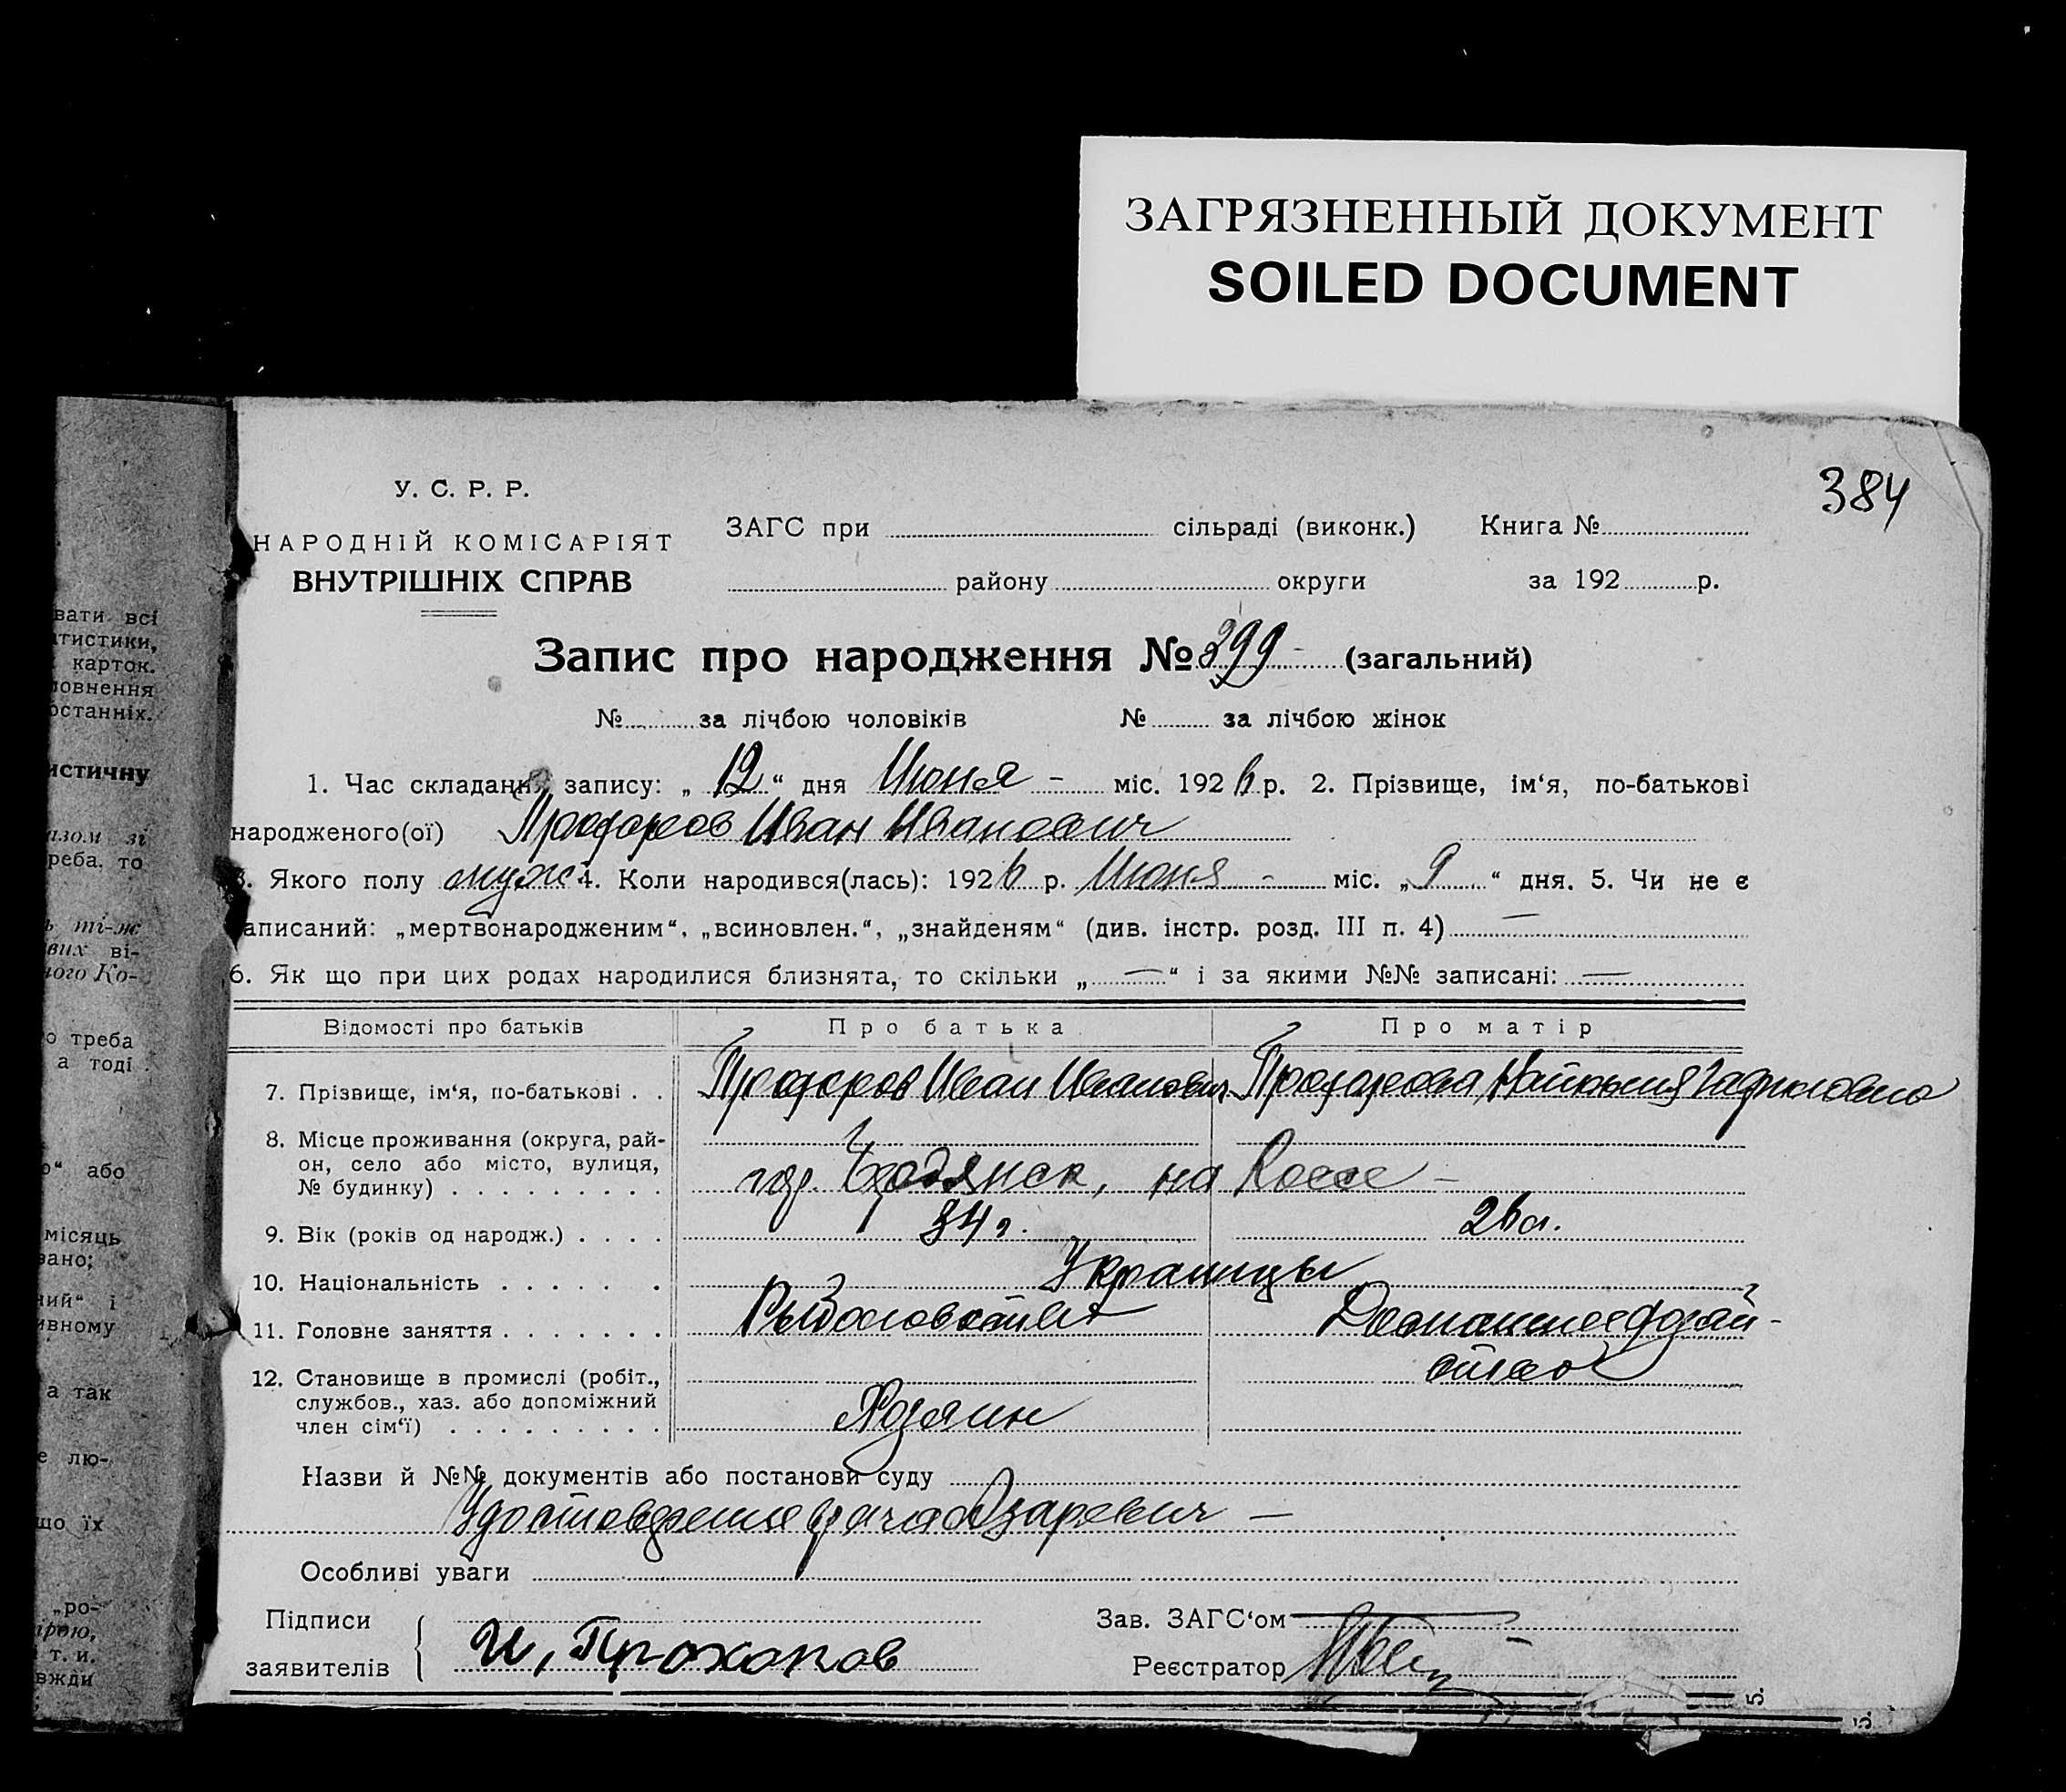 ЗАГРЯЗНЕННЫЙ ДОКУМЕНТ
SOILED DOCUMENT
384
У. С. Р. Р.
НАРОДНІЙ КОМІСАРІЯТ
ВНУТРІШНІХ СПРАВ
ЗАГС при сільраді (виконк.) Книга №
району округи за 192 р.
Запис про народження № 399 - (загальний)
№ за лічбою чоловіків № за лічбою жінок
1. Час складання запису: „ 12 “ дня Июня - міс. 192 6 р. 2. Прізвище, ім‘я, по-батькові
народженого(ої) Прохоров Иван Иванович
3. Якого полу муж 4. Коли народився(лась): 192 6 р. Июня - міс. „ 9 “ дня. 5. Чи не є
записаний: „мертвонародженим“, „всиновлен.“, „знайденям“ (див. інстр. розд. III п. 4) —
6. Як що при цих родах народилися близнята, то скільки „ — “ і за якими №№ записані: —
Відомості про батьків Про батька Про матір
7. Прізвище, ім‘я, по-батькові . . Прохоров Иван Иванович Прохорова
8. Місце проживання (округа, рай-
он, село або місто, вулиця,
№ будинку) . . . . . . . . . гор. Бердянск, на Косе -
9. Вік (років од народж.) . . . . 34 г. 26 л.
10. Національність . . . . . . Украинцы
11. Головне заняття . . . . . . . Рыболовство Домашнее хозяй-
ство
12. Становище в промислі (робіт.,
службов., хаз. або допоміжний
член сім‘ї) . . . . . . . . . Хозяин
Назви й №№ документів або постанови суду
Удостоверение врача Азаревич —
Особливі уваги
Підписи
заявителів И, Прохоров
Зав. ЗАГС‘ом
Реєстратор
вати всі
тистики,
карток.
повнення
останніх.
истичну
азом зі
реба, то
ь ті-ж
вих ві-
ного Ко-
о треба
а тоді
о“ або
місяць
вано;
ний“ і
ивному
а так
е лю-
що їх
„ро-
ірою,
т. и.
вжди
5.
5.